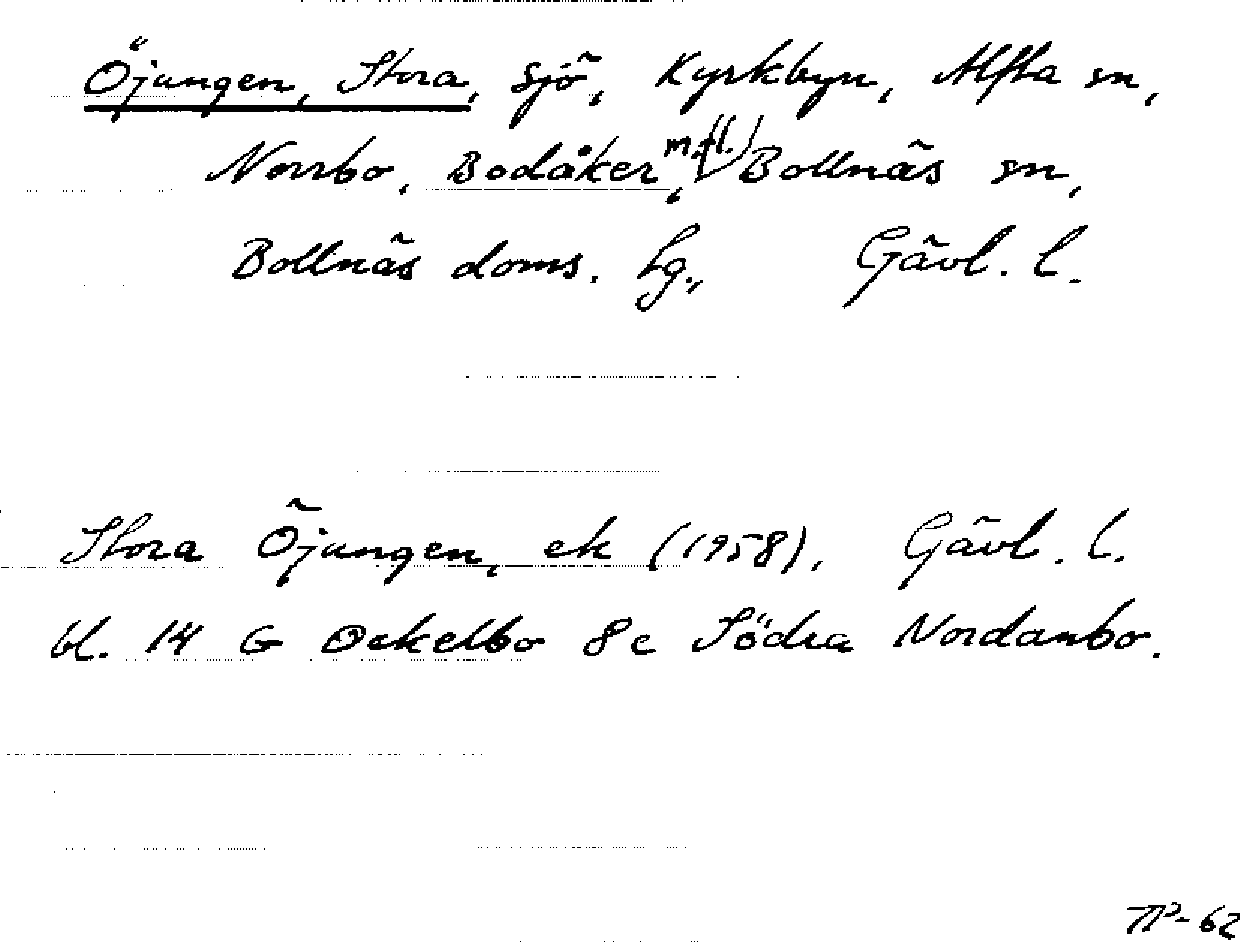 Öjungen, Stora, sjö, Kyrkbyn, Alfta sn,
Norrbo, Bodåker, m.fl. Bollnäs sn,
Bollnäs doms. lg., Gävl. l.
Stora Öjungen, ek (1958), Gävl. l.
bl. 14 G Ockelbo 8 c Södra Nordanbo.
TP-62